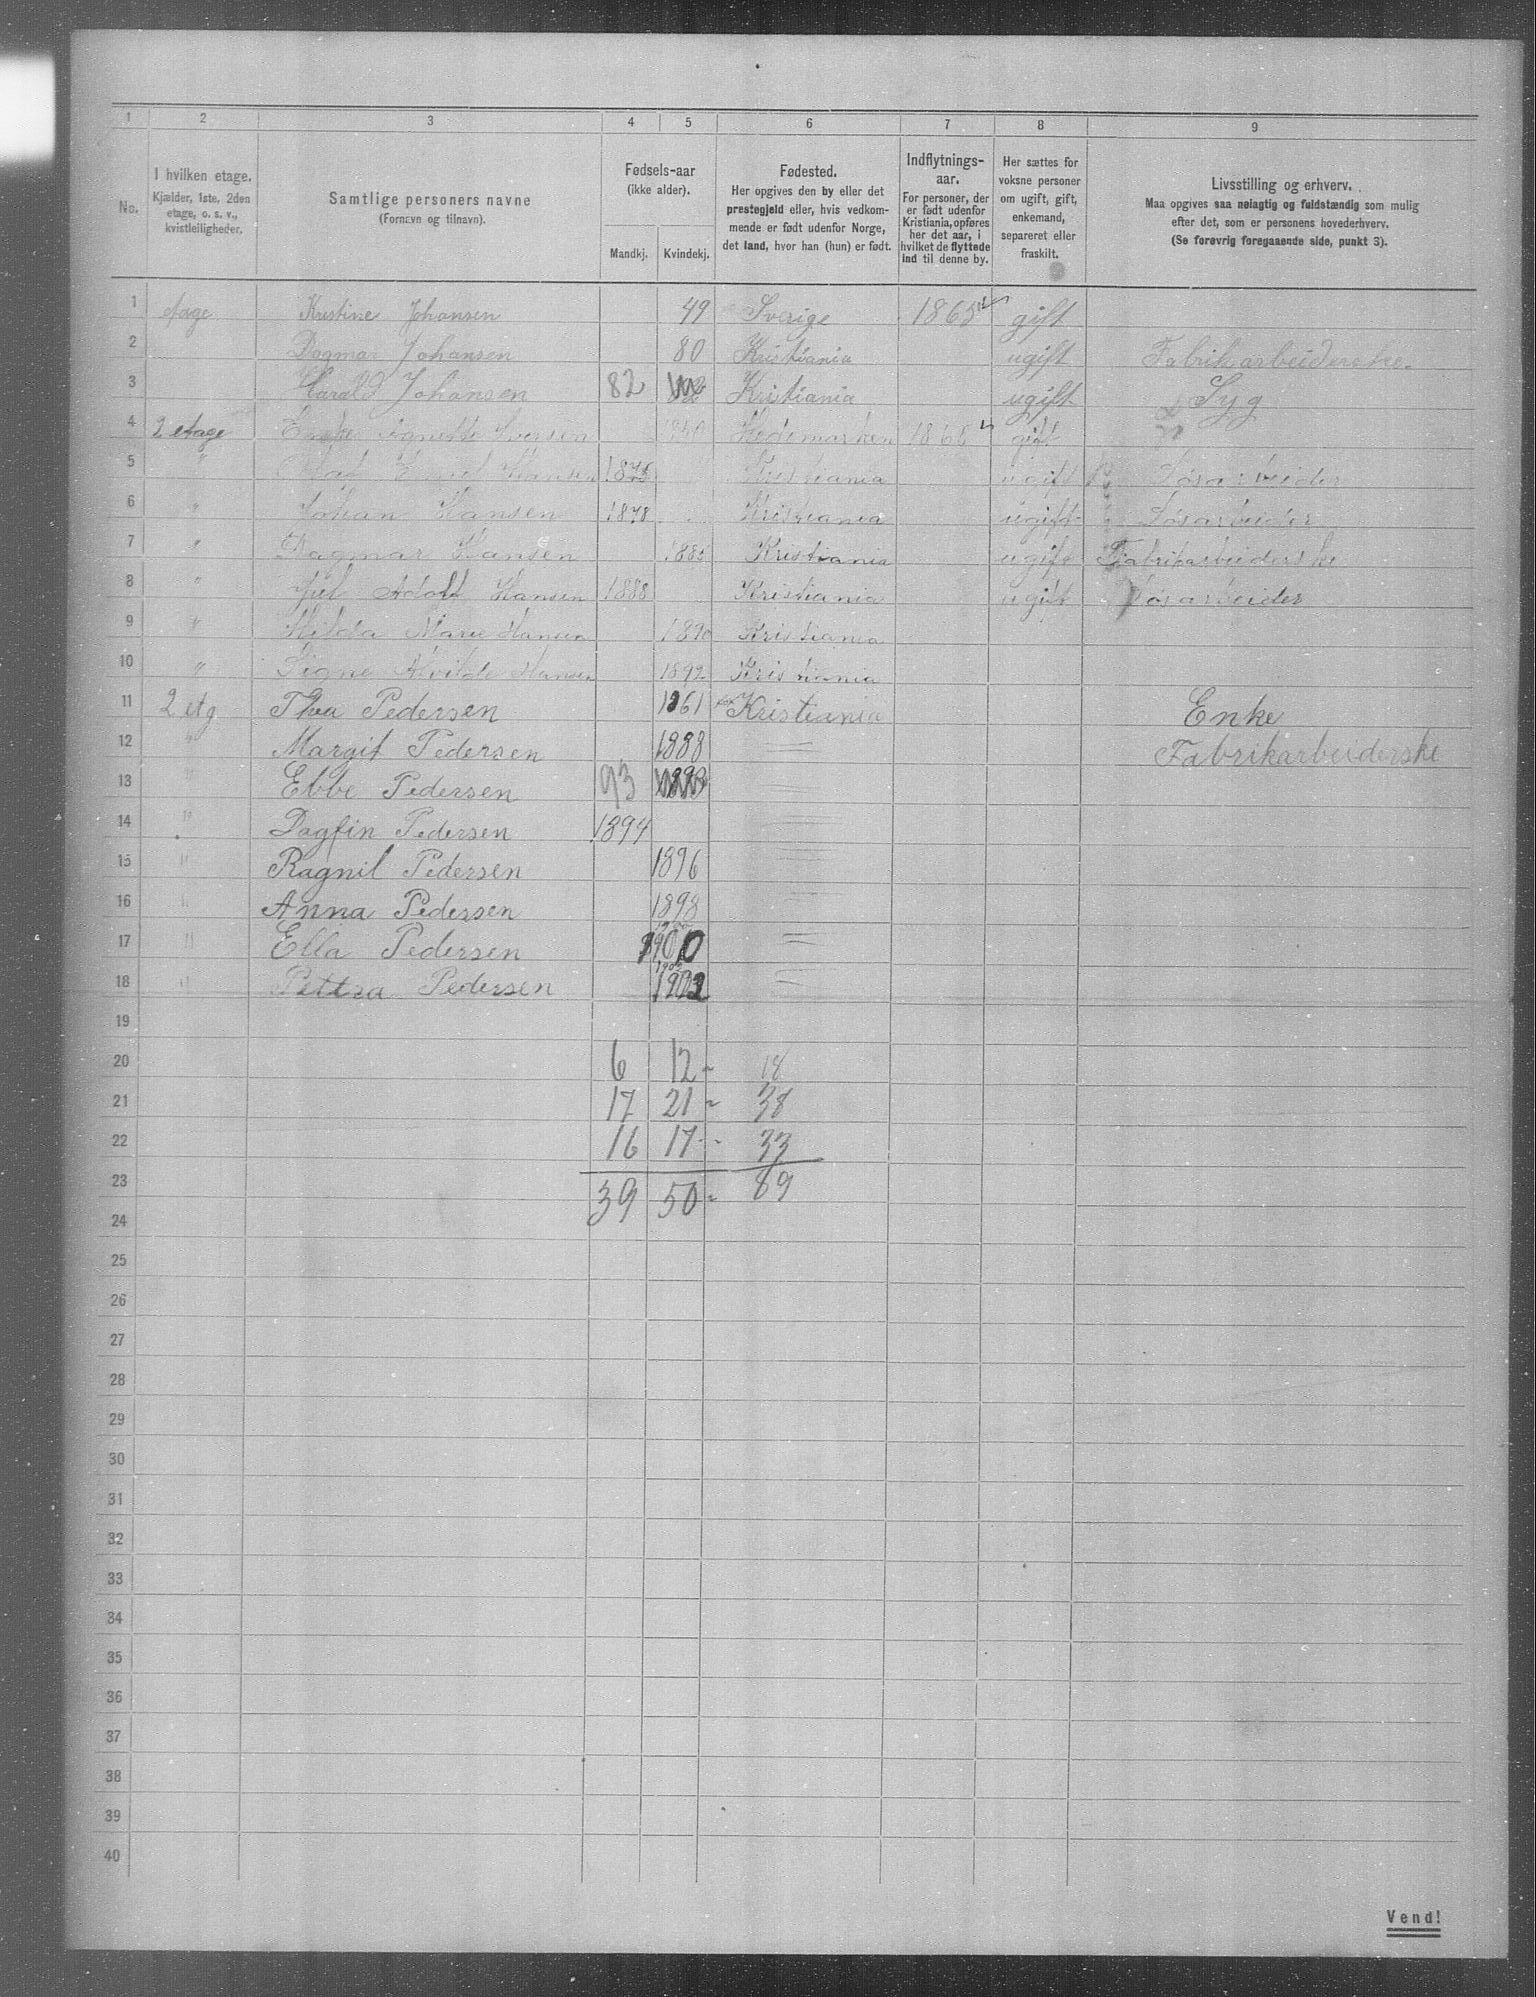 1 2 3 4 5 6 7 8 9
No.
I hvilken etage.
Kjælder, 1ste, 2den
etage, o. s. v.,
kvistleiligheder.
Samtlige personers navne
(Fornavn og tilnavn).
Fødsels-aar
(ikke alder).
Mandkj. Kvindekj.
Fødested.
Her opgives den by eller det
prestegjeld eller, hvis vedkom-
mende er født udenfor Norge,
det land, hvor han (hun) er født.
Indflytnings-
aar.
For personer, der
er født udenfor
Kristiania, opføres
her det aar, i
hvilket de flyttede
ind til denne by.
Her sættes for
voksne personer
om ugift, gift,
enkemand,
separeret eller
fraskilt.
Livsstilling og erhverv.
Maa opgives saa nøiagtig og fuldstændig som mulig
efter det, som er personens hovederhverv.
(Se forøvrig foregaaende side, punkt 3).
1 etage Kristine Johansen 49 Sverige 1865 gift
2 Dagmar Johansen 80 Kristiania ugift Fabrikarbeiderske.
3 Harald Johansen 82 Kristiania ugift Syg
4 2 etage Agnette Iversen 1850 Hedemarken 1868 gift
5 " Hansen 1875 Kristiania ugift Løsarbeider
6 " Johan Hansen 1878 Kristiania ugift Løsarbeider
7 " Dagmar Hansen 1885 Kristiania ugift Fabrikarbeiderske
8 " Adolf Hansen 1888 Kristiania ugift Løsarbeider
9 " Hilda Marie Hansen 1890 Kristiania
10 " Signe Alvilde Hansen 1892 Kristiania
11 2 etg Thea Pedersen 1861 Kristiania Enke
12 " Margit Pedersen 1888 — " — Fabrikarbeiderske
13 " Ebbe Pedersen 93
14 " Dagfin Pedersen 1894
15 " Ragnil Pedersen 1896
16 " Anna Pedersen 1898
17 " Ella Pedersen 1900
18 " Pettra Pedersen 1902
19
20 6 12 - 18
21 17 21 - 38
22 16 17 - 33
23 39 50 - 89
24
25
26
27
28
29
30
31
32
33
34
35
36
37
38
39
40
Vend!